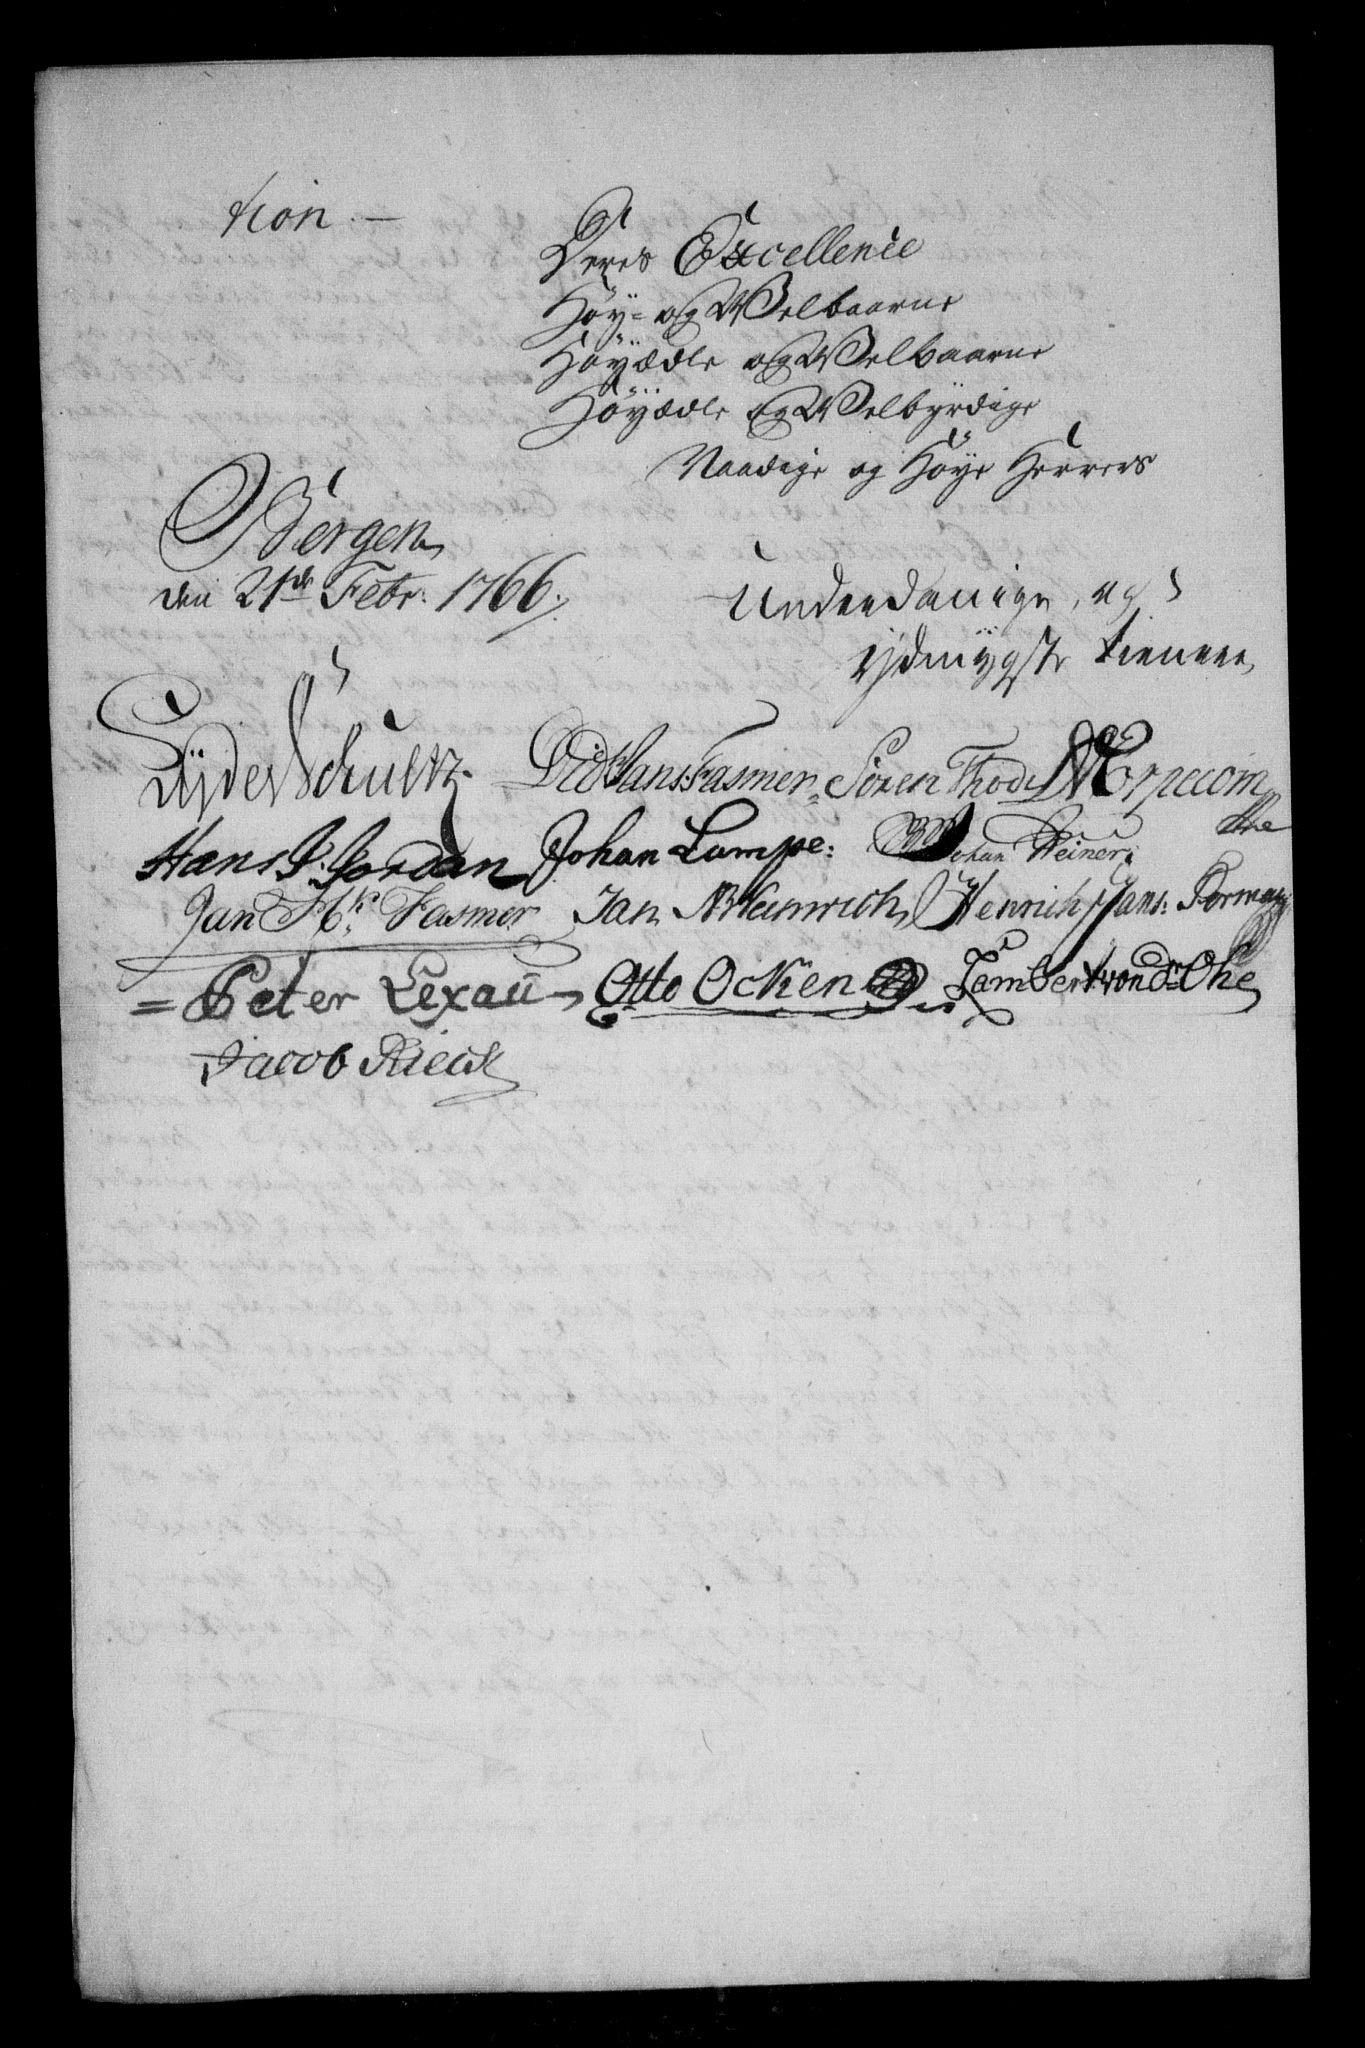 tion. —
Deres Excellence
Høy- og Welbaarne
Høyædle og Welbaarne
Høyædle og Welbyrdige
Naadige og Høye Herrers
Bergen
den 21de Febr: 1766.
Underdanige, og
ydmygste tienere
Lyder Schultz. Did Hans: Fasmer Sören Thode
Hans P: Jordan Johan Lampe: Johan Heiner
Jan Hk: Fasmer Jan Heinrich Henrich Jans: Forman
= Peter Lexau Otto Ocken Lambert von d: Ohe
Jacob Rieck